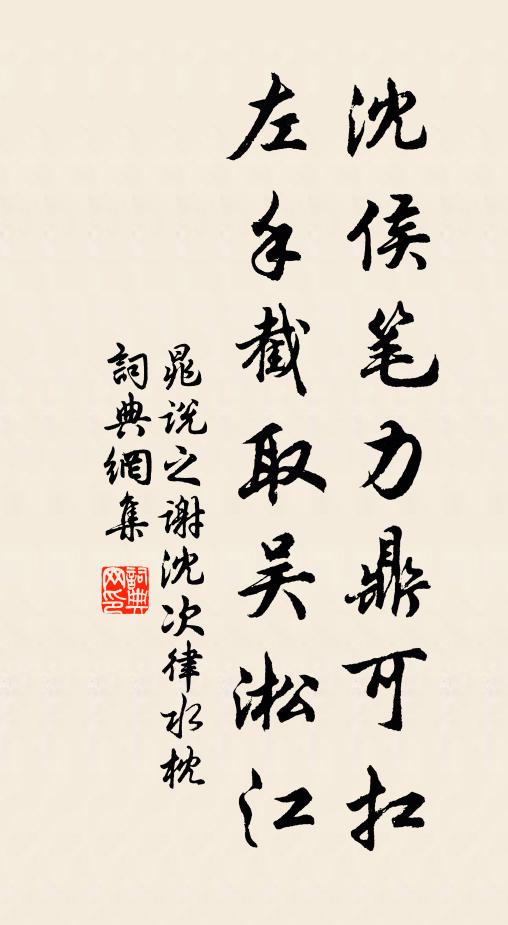 沈侯笔力鼎可扛
左手截取吴淞江
晁说之谢沈次律水枕
詞典網集
詞典网印